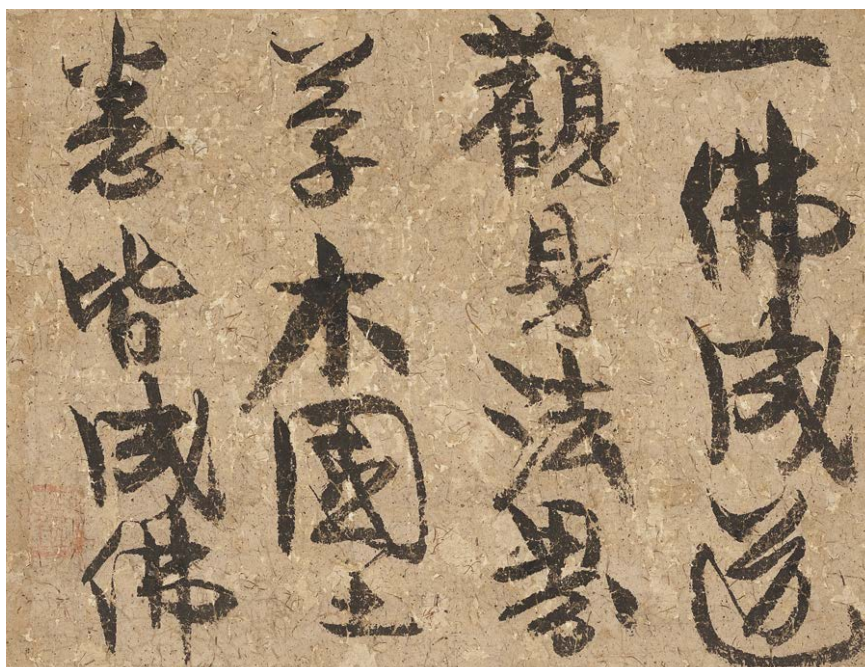 一佛成道
觀身法界
草木國土
悉皆成佛